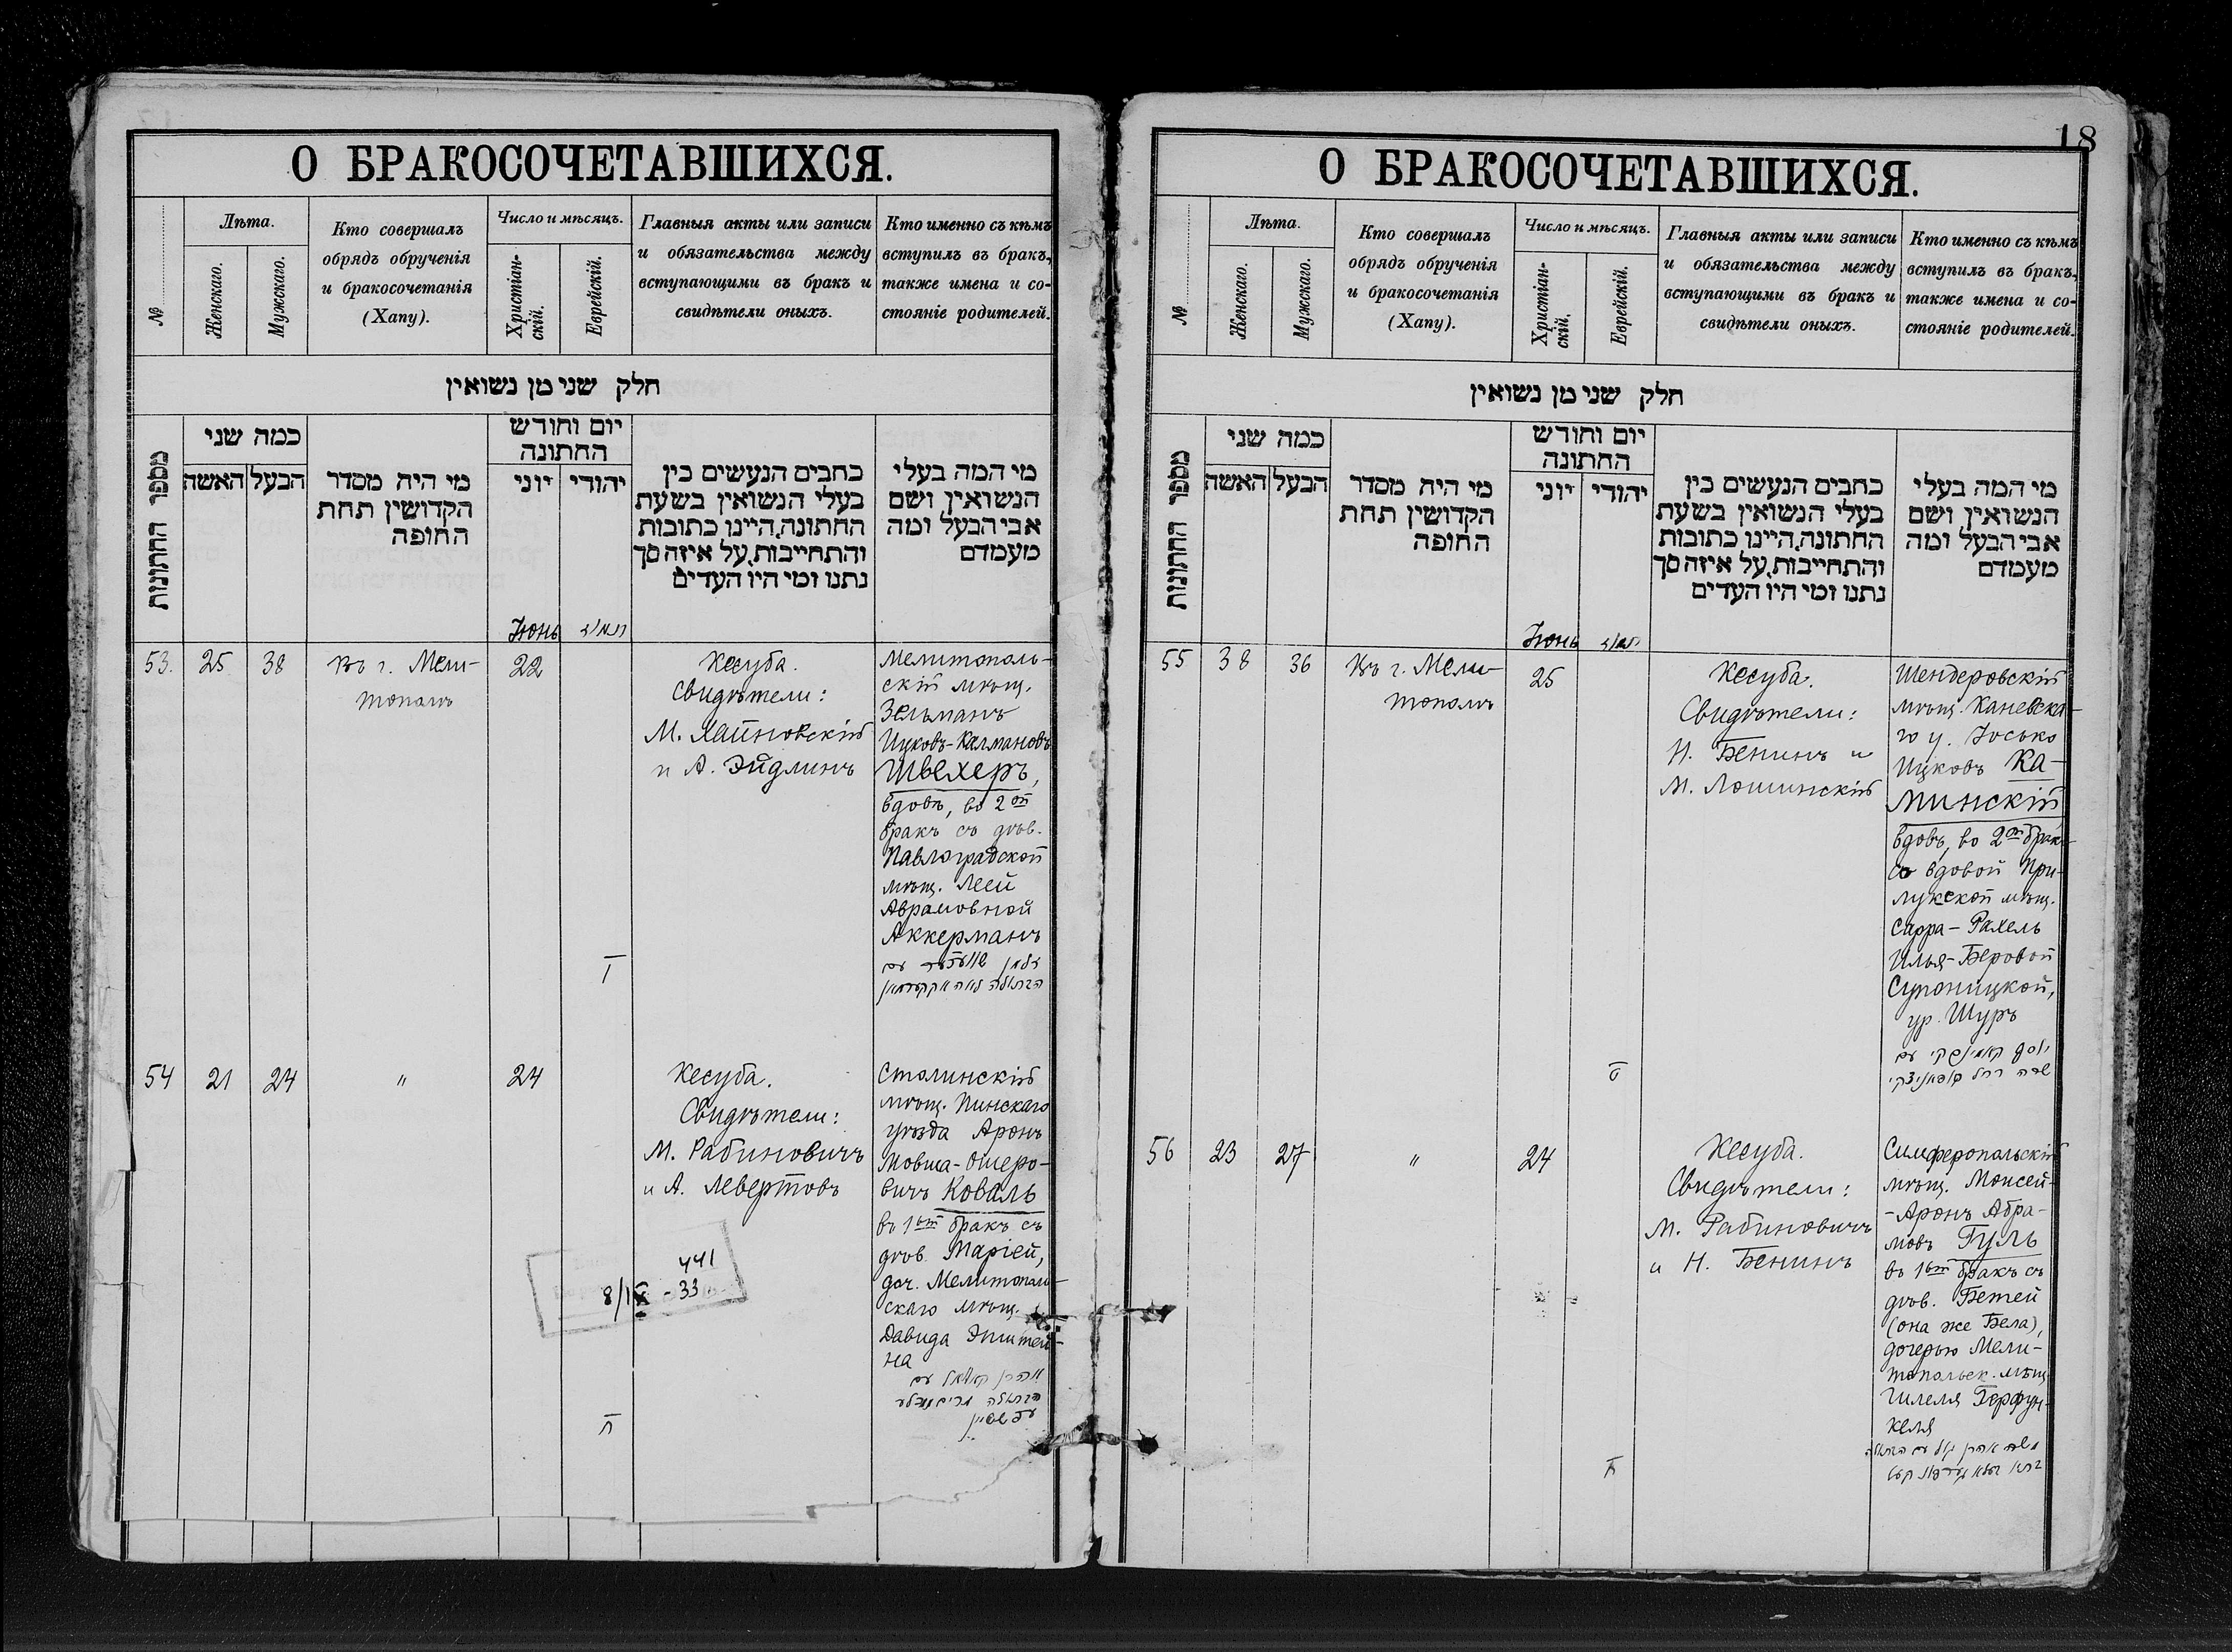 О БРАКОСОЧЕТАВШИХСЯ.
№
Лѣта.
Женскаго.
Мужскаго.
Кто совершалъ
обрядъ обрученія
и бракосочетанія
(Хапу).
Число и мѣсяцъ.
Христіан-
скій.
Еврейскій.
Главныя акты или записи
и обязательства между
вступающими въ бракъ и
свидѣтели оныхъ.
Кто именно съ кѣмъ
вступилъ въ бракъ,
также имена и со-
стояніе родителей.
חלק שני מן נשואין
מספר החתונות
כמה שני
האשה
הבעל
מי היה מסדר
הקדושין תחת
החופה
יום וחודש
החתונה
יוני
יהודי
כתבים הנעשים בין
בעלי הנשואין בשעת
החתונה, היינו כתובות
והתחייבות, על איזה סך
נתנו ומי היו העדים
מי המה בעלי
הנשואין, ושם
אבי הבעל ומה
מעמדם
Іюнь
תמוז
53.
25
38
Въ г. Мели-
тополѣ
22
Кесуба.
Свидѣтели:
М. Хайновскій
и А. Эйдлинъ
Мелитополь-
скій мѣщ.
Зельманъ
Ицковъ-Калмановъ
Швехеръ,
вдовъ, во 2ой
бракъ съ дѣв.
Павлоградской
мѣщ. Леей
Аврамовной
Аккерманъ
הבתולה לאה אקקערמאן
54
21
24
"
24
Кесуба.
Свидѣтели:
М. Рабиновичъ
и А. Левертовъ
441
8/IX - 33
Столинскій
мѣщ. Пинскаго
уѣзда Аронъ
Мовша-Ошеро-
вичъ Коваль
въ 1ый бракъ съ
дѣв. Маріей,
доч. Мелитополь-
скаго мѣщ.
Давида Эпштей-
на
ח
О БРАКОСОЧЕТАВШИХСЯ.
18
№
Лѣта.
Женскаго.
Мужскаго.
Кто совершалъ
обрядъ обрученія
и бракосочетанія
(Хапу).
Число и мѣсяцъ.
Христіан-
скій.
Еврейскій.
Главныя акты или записи
и обязательства между
вступающими въ бракъ и
свидѣтели оныхъ.
Кто именно съ кѣмъ
вступилъ въ бракъ,
также имена и со-
стояніе родителей.
חלק שני מן נשואין
מספר החתונות
כמה שני
האשה
הבעל
מי היה מסדר
הקדושין תחת
החופה
יום וחודש
החתונה
יוני
יהודי
כתבים הנעשים בין
בעלי הנשואין בשעת
החתונה, היינו כתובות
והתחייבות, על איזה סך
נתנו ומי היו העדים
מי המה בעלי
הנשואין, ושם
אבי הבעל ומה
מעמדם
Іюнь
תמוז
55
38
36
Въ г. Мели-
тополѣ
25
Кесуба.
Свидѣтели:
Н. Бенинъ и
М. Лошинскій
Шендеровскій
мѣщ. Каневска-
го у. Іосько
Ицковъ Ка-
минскій
вдовъ, во 2ой бракъ
со вдовой При-
лукской мѣщ.
Сарра-Рахель
Илья-Беровой
Супоницкой,
ур. Шуръ
יוסף קאמינסקי עם
שרה רחל סופאניצקי
ט
56
23
27
"
24
Кесуба.
Свидѣтели:
М. Рабиновичъ
и Н. Бенинъ
Симферопольскій
мѣщ. Моисей-
-Аронъ Абра-
мовъ Гуль
въ 1ый бракъ съ
дѣв. Бетей
(она же Бела),
дочерью Мели-
топольск. мѣщ.
Гилеля Герфун-
келя
משה אהרן גול עם הבתולה
ח